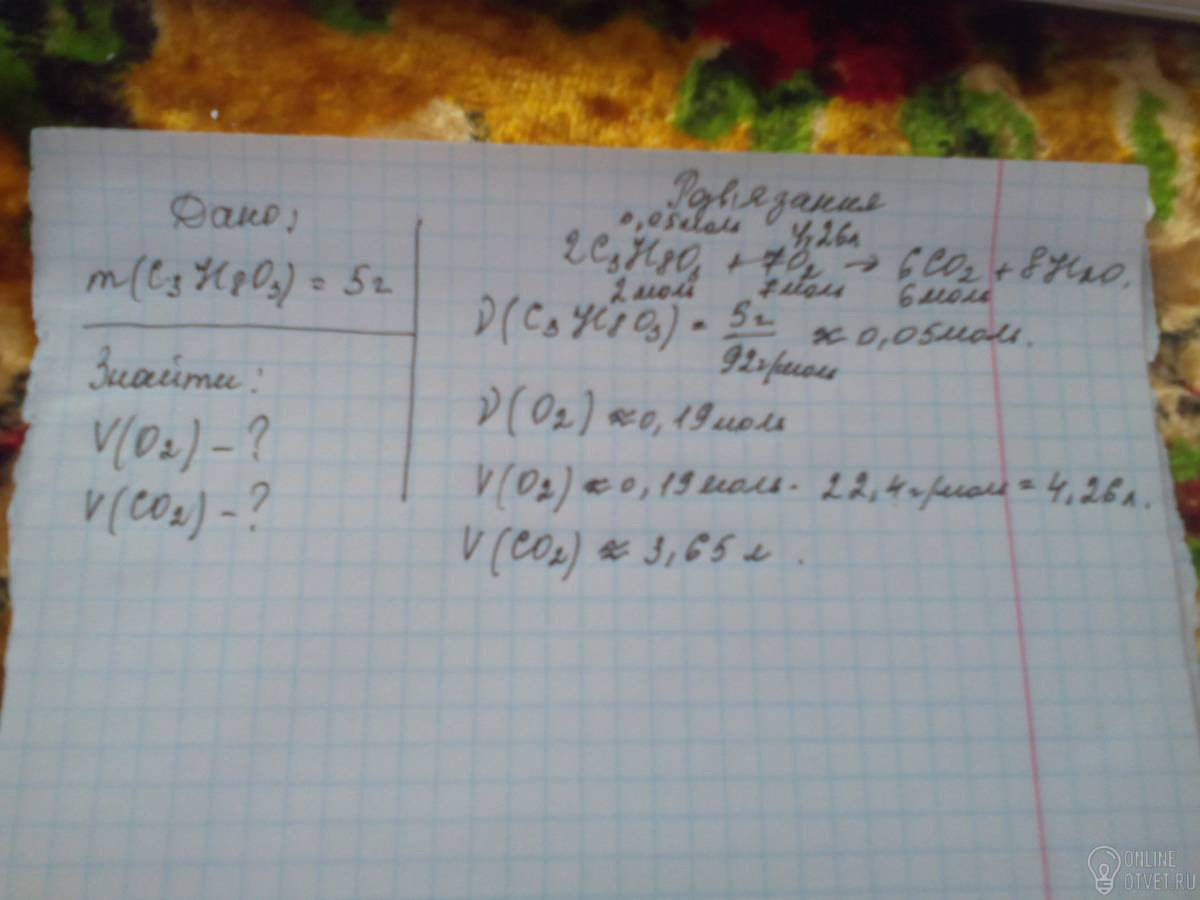 Дано:
m(C3H8O3) = 5г
Знайти:
V(O2) – ?
V(CO2) – ?
Розв'язання
0,05моль 4,26л
2C3H8O3 + 7O2 → 6CO2 + 8H2O.
2моль 7моль 6моль
ν(C3H8O3) = 5г / 92г/моль ≈ 0,05моль.
ν(O2) ≈ 0,19моль
V(O2) ≈ 0,19моль · 22,4г/моль = 4,26л.
V(CO2) ≈ 3,65л.
ONLINE
OTVET.RU